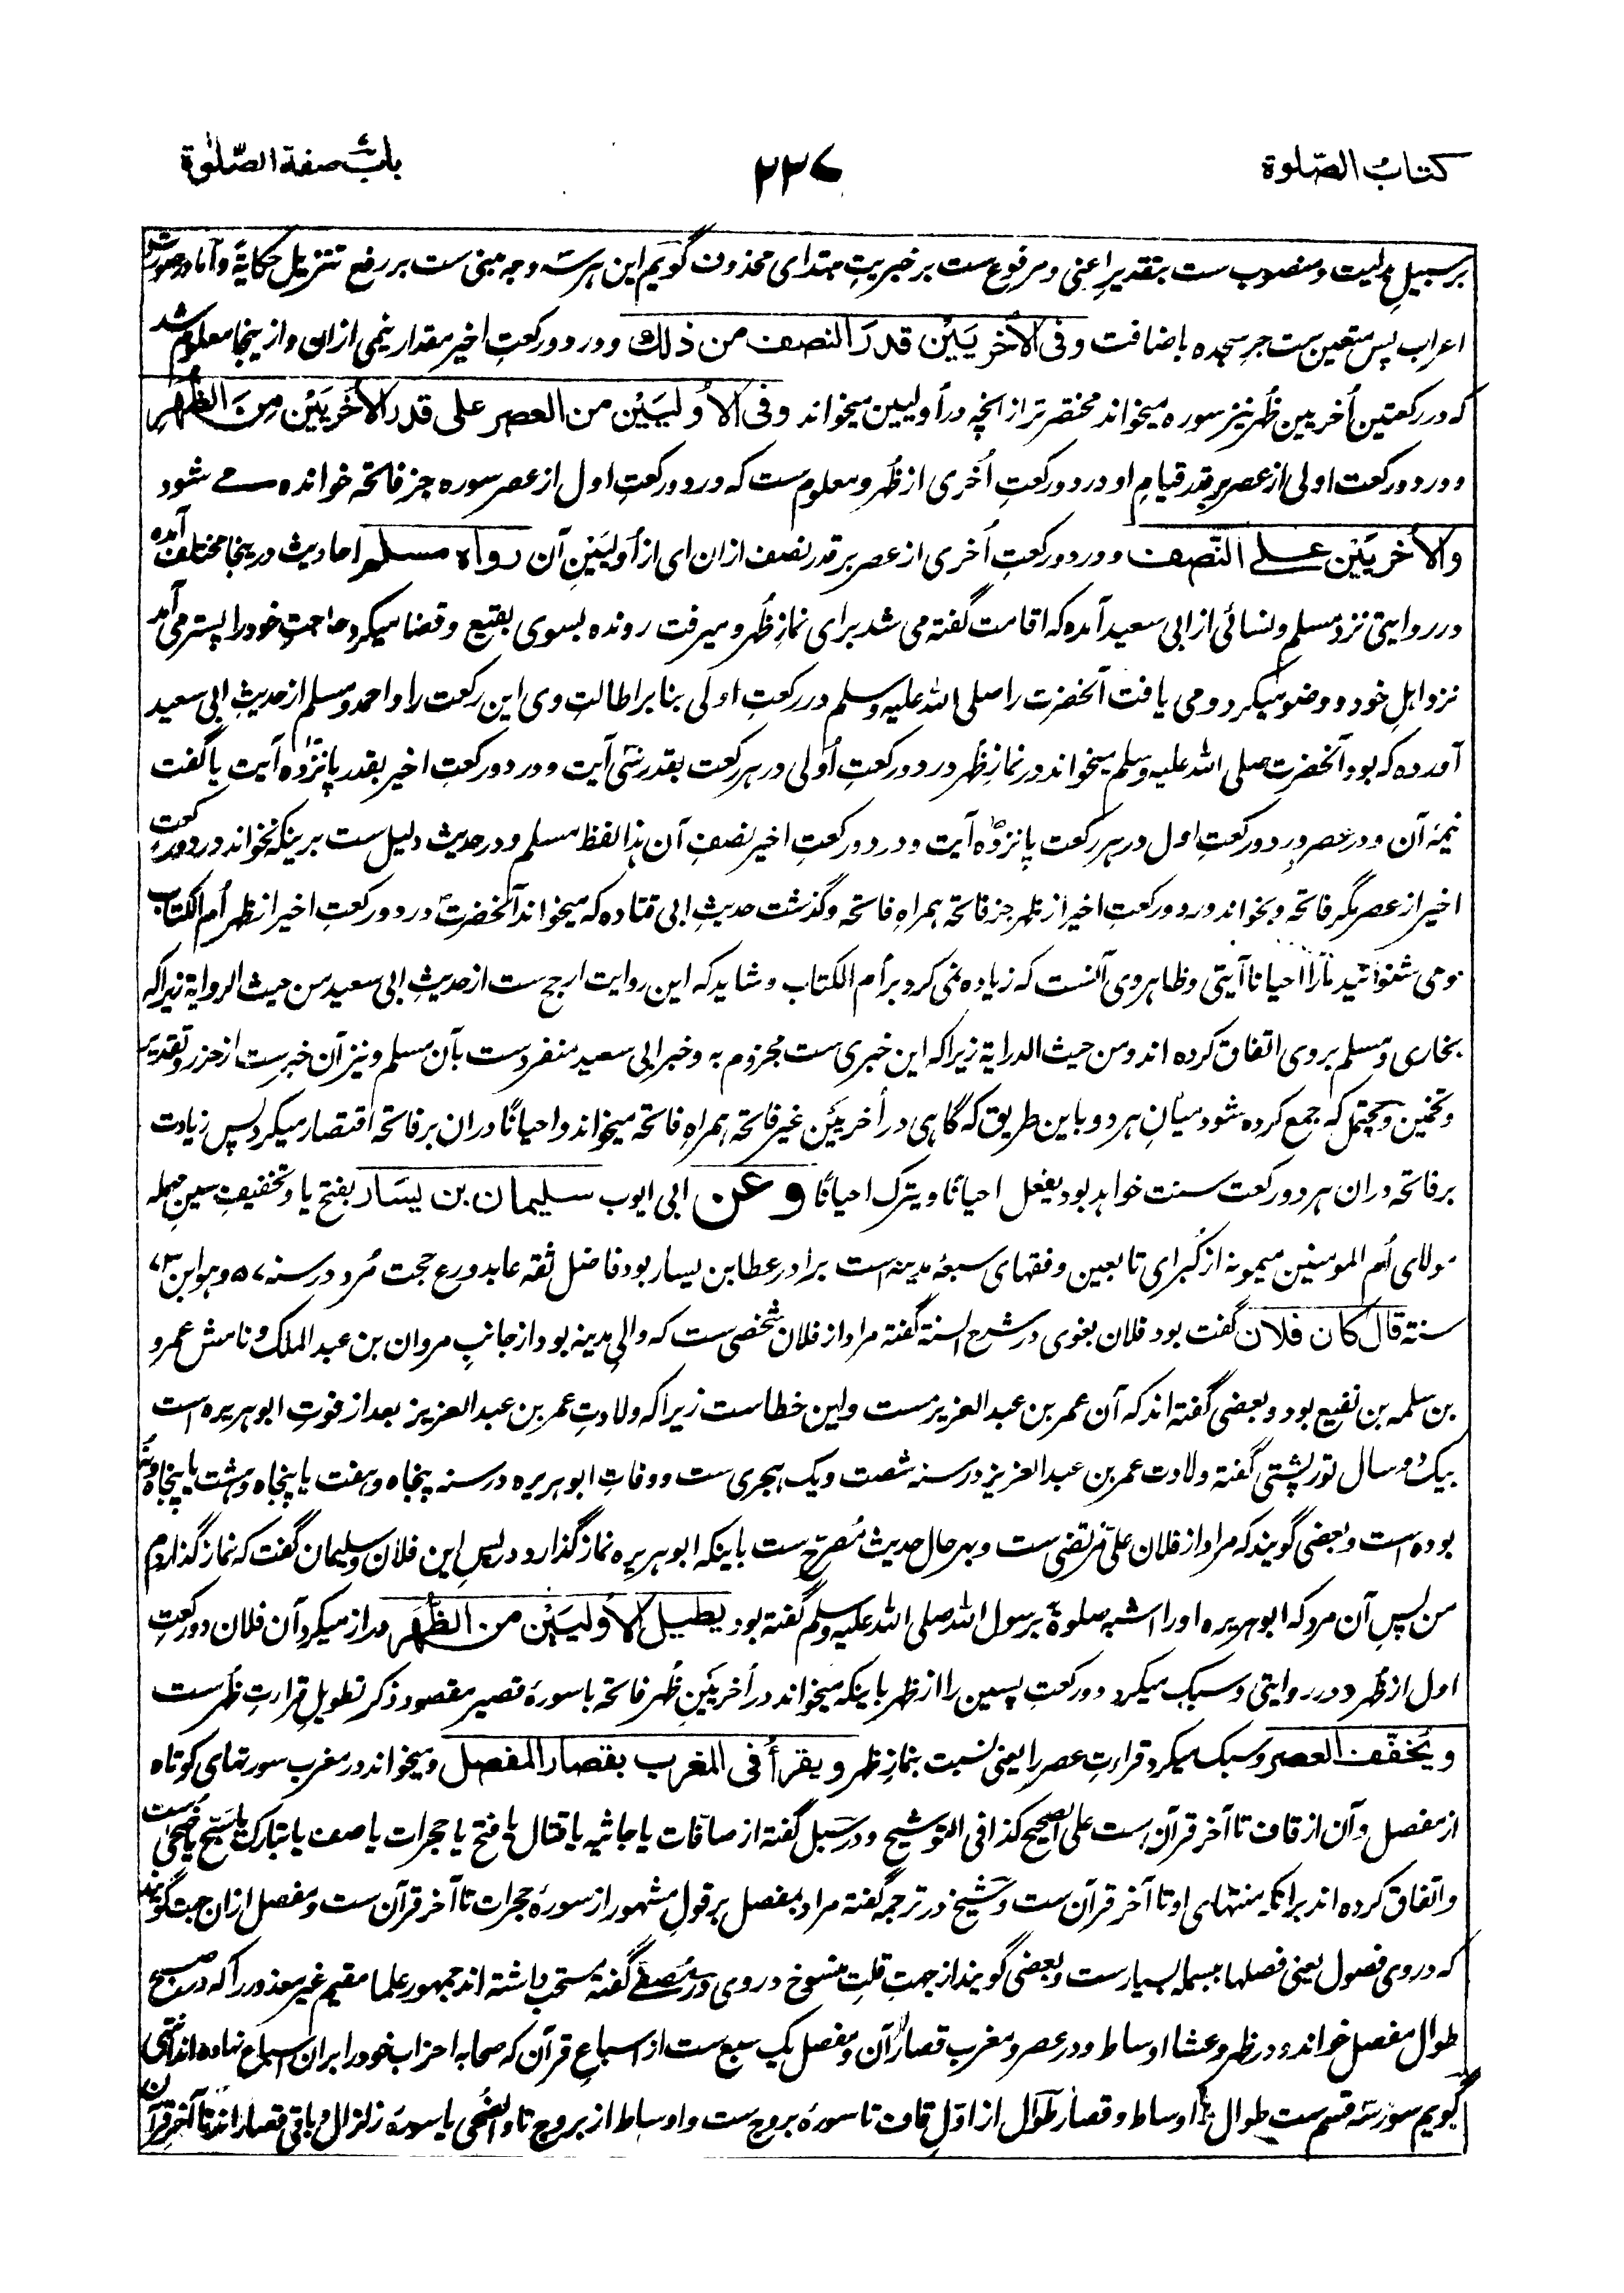 کتاب الصّلوة
۲۲۷
باب صفة الصّلوٰة
بر سبیلِ بدلیت و منصوب ست بتقدیرِ اعنی و مرفوع ست بر خبریتِ مبتدای محذوف گویم این هر سه وجه مبنی ست بر رفع تنزیل حکایةً و اما در صورت
اعراب پس متعین ست جر سجده باضافت وفی الأخریَیْن قدرَ النصف من ذلك و در دو رکعتِ اخیر مقدار نیمی ازان و ازینجا معلوم شد
که در رکعتین اُخریین ظُهر نیز سوره میخواند مختصر تر از انچه در اُولیین میخواند وفی الأُولیَیْن من العصر علی قدر الأُخریَیْن مِنَ الظُّهرِ
و در دو رکعت اولی از عصر بر قدر قیامِ او در دو رکعتِ اُخری از ظُهر و معلوم ست که در دو رکعتِ اول از عصر سوره جز فاتحه خوانده مے شود
والأخریَیْن علے النّصف و در دو رکعتِ اُخری از عصر بر قدر نصف ازان ای از اُولیَینِ آن رواه مسلم احادیث درینجا مختلف آمده
در روایتی نزد مسلم و نسائی از ابی سعید آمده که اقامت گفته می شد برای نمازِ ظُهر و میرفت رونده بسوی بقیع و قضا میکرد حاجتِ خود را پستر می آمد
نزد اهلِ خود و وضو میکرد و می یافت آنحضرت را صلی الله علیه وسلم در رکعتِ اولی بنا بر اطالتِ وی این رکعت را و احمد و مسلم از حدیثِ ابی سعید
آورده که بود آنحضرت صلی الله علیه وسلم میخواند در نمازِ ظُهر در دو رکعتِ اُولی در هر رکعت بقدر سی آیت و در دو رکعتِ اخیر بقدر پانزده آیت یا گفت
نیمهٔ آن و در عصر در دو رکعتِ اول در هر رکعت پانزده آیت و در دو رکعتِ اخیر نصفِ آن هذا لفظ مسلم و در حدیث دلیل ست برینکه نخواند در دو رکعت
اخیر از عصر مگر فاتحه و بخواند در دو رکعتِ اخیر از ظهر جز فاتحه همراهِ فاتحه و گذشت حدیثِ ابی قتاده که میخواند آنحضرتؐ در دو رکعتِ اخیر از ظهر اُم الکتاب
و می شنوانید مارا احیانا آیتی و ظاهر وی آنست که زیاده نمی کرد بر اُم الکتاب و شاید که این روایت ارجح ست از حدیثِ ابی سعید من حیث الروایة زیرا که
بخاری و مسلم بر وی اتفاق کرده اند و من حیث الدرایة زیرا که این خبری ست مجزوم به و خبر ابی سعید منفردست بآن مسلم و نیز آن خبرست از حزر و تقدیر
و تخمین و محتمل که جمع کرده شود میانِ هر دو باین طریق که گاهی در اُخریَین غیر فاتحه همراهِ فاتحه میخواند و احیانًا دران بر فاتحه اقتصار میکرد پس زیادت
بر فاتحه دران هر دو رکعت سنت خواهد بود یفعل احیانًا و یترک احیانًا وعن ابی ایوب سلیمان بن یسَار بفتح یا و تخفیفِ سین مهمله
مولای اُم المومنین میمونه از کُبرای تابعین و فقهای سبعهٔ مدینه است برادر عطا بن یسار بود فاضل ثقه عابد ورع حجت مُرد در سنه ۱۰۷ و هو ابن ۷۳
سنة قال کان فلان گفت بود فلان بغوی در شرح السنة گفته مراد از فلان شخصی ست که والی مدینه بود از جانبِ مروان بن عبد الملک و نامش عمرو
بن سلمه بن نفیع بود و بعضی گفته اند که آن عمر بن عبد العزیزست و این خطاست زیرا که ولادتِ عمر بن عبد العزیز بعد از فوتِ ابو هریره است
بیک دو سال تورپشتی گفته ولادت عمر بن عبد العزیز در سنه شصت و یک هجری ست و وفاتِ ابو هریره در سنه پنجاه و هفت یا پنجاه و هشت یا پنجاه و نه
بوده است و بعضی گویند که مراد از فلان علیِّ مرتضی ست و بهر حال حدیث مُصرّح ست باینکه ابو هریره نماز گذارد در پسِ این فلان و سلیمان گفت که نماز گذاردم
من پسِ آن مرد که ابو هریره او را اشبه صلوةً برسول الله صلی الله علیه وسلم گفته بود یطیل الأولیَیْن من الظُّهَرِ دراز میکرد آن فلان دو رکعتِ
اول از ظُهر و در روایتی و سبک میکرد دو رکعتِ پسین را از ظهر باینکه میخواند در اُخریَینِ ظُهر فاتحه با سورهٔ قصیر مقصود ذکر تطویلِ قراءتِ ظُهرست
ویُخفّف العصر و سبک میکرد قراءتِ عصر را یعنی نسبت بنمازِ ظهر ویقرأ فی المغرب بقصار المفصل و میخواند در مغرب سورتهای کوتاه
از مفصل و آن از قاف تا آخر قرآن ست علی الصحیح کذا فی التوشیح و در سبل گفته از صافّات یا جاثیه یا قتال یا فتح یا حجرات یا صف یا تبارک یا سبّح یا ضُحی ست
و اتفاق کرده اند بر انکه منتهای او تا آخر قرآن ست و شیخ در ترجمه گفته مراد بمفصل بر قولِ مشهور از سورهٔ حجرات تا آخر قرآن ست و مفصل ازان جهت گویند
که در وی فصول یعنی فصلها ببسمله بسیارست و بعضی گویند از جهتِ قلتِ منسوخ در وی و در مُصفّے گفته مستحب داشته اند جمهور علما مقیم غیر معذور را که در صبح
طوال مفصل خواند و در ظهر و عشا اوساط و در عصر و مغرب قصار آن و مفصل یک سبع ست از اسباعِ قرآن که صحابه احزابِ خود را بران اسباع نهاده اند انتهی
گویم سور سه قسم ست طوال و اوساط و قصار طوال از اوّلِ قاف تا سورهٔ بروج ست و اوساط از بروج تا والضُحی یا سورهٔ زلزال و باقی قصار اند تا آخر قرآن